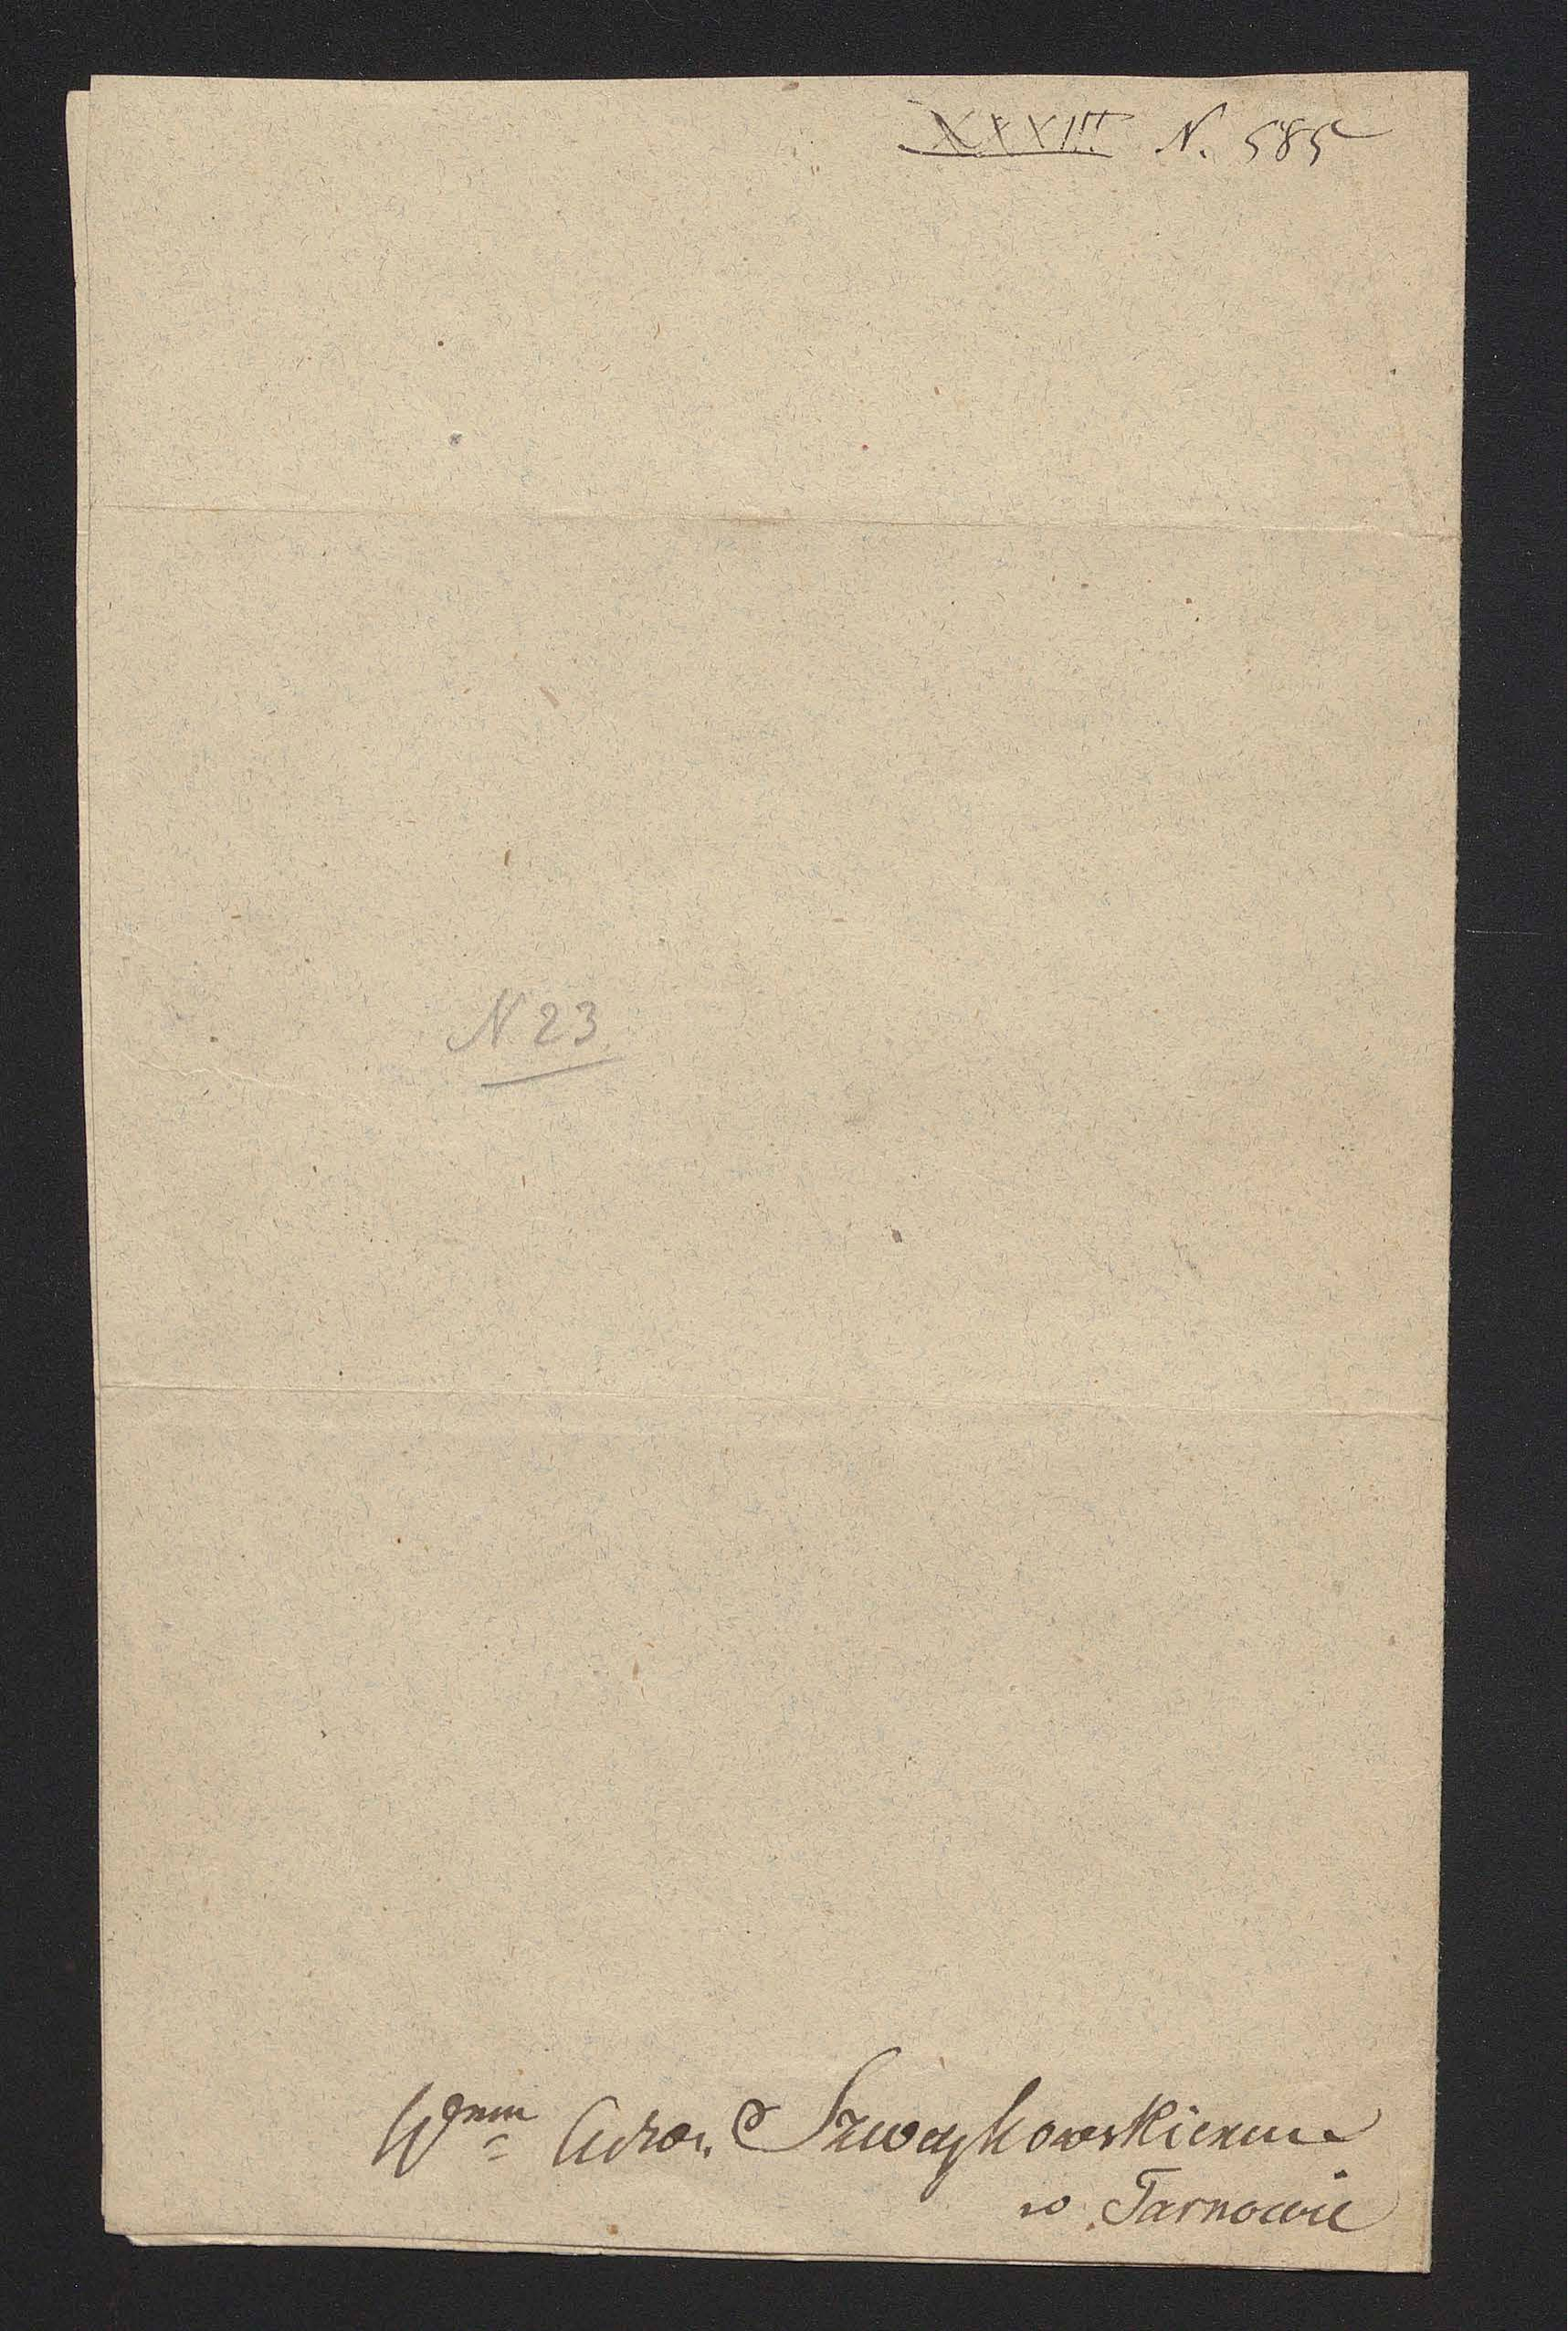 XXXIII N. 585
N 23
Wgnmu Szwaykowskiemu
w Tarnowie